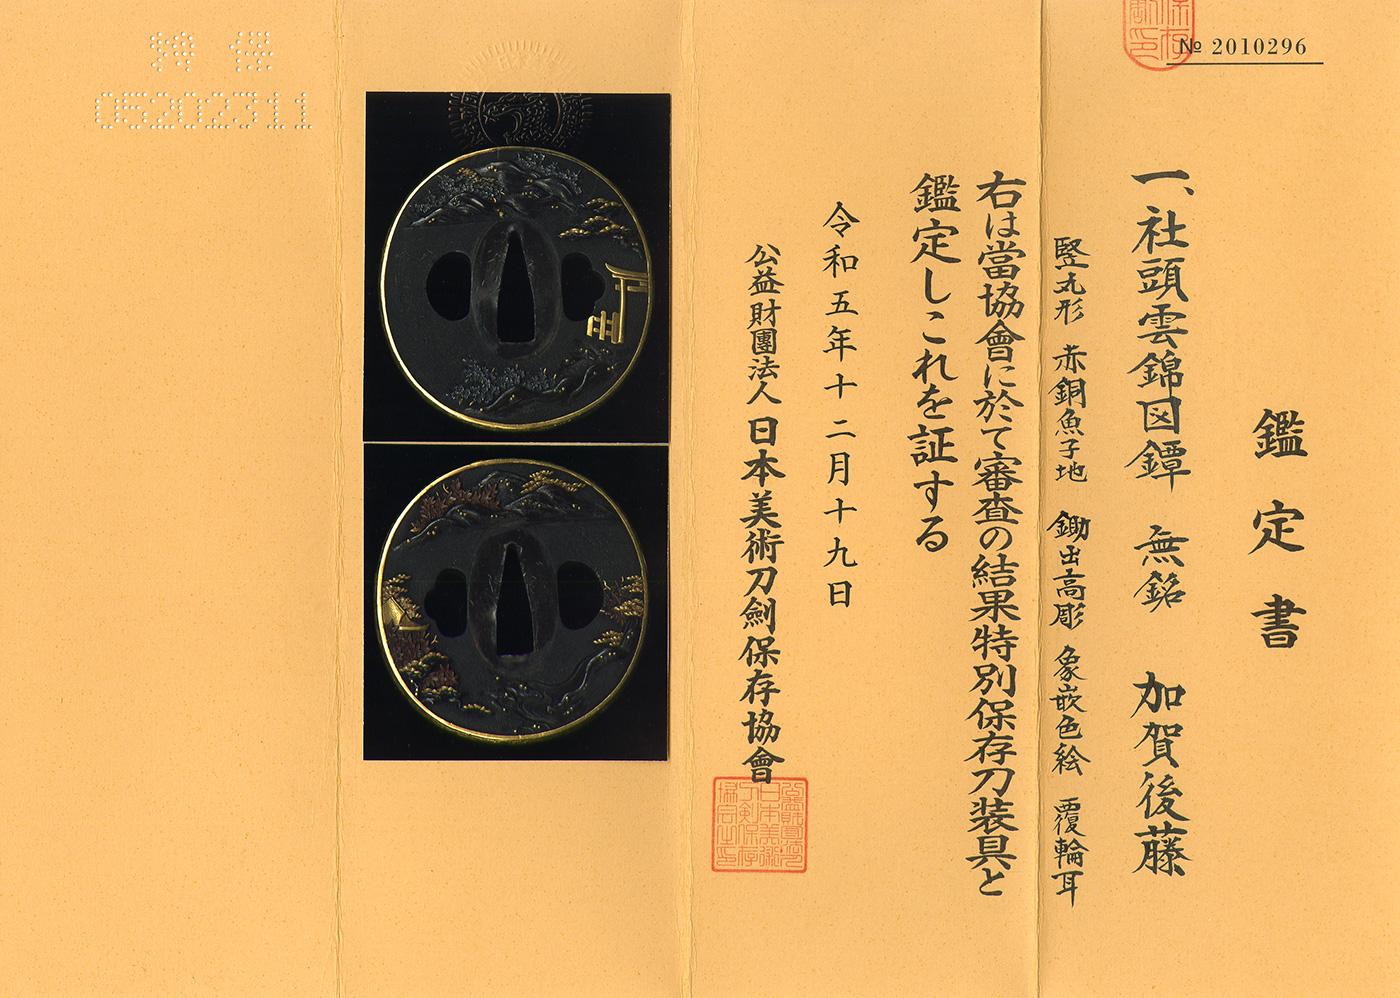 № 2010296
鑑定書
一、社頭雲錦図鐔 無銘 加賀後藤
竪丸形 赤銅魚子地 鋤出高彫 象嵌色絵 覆輪耳
右は當協會に於て審査の結果特別保存刀装具と
鑑定しこれを証する
令和五年十二月十九日
公益財團法人 日本美術刀劍保存協會
05202311